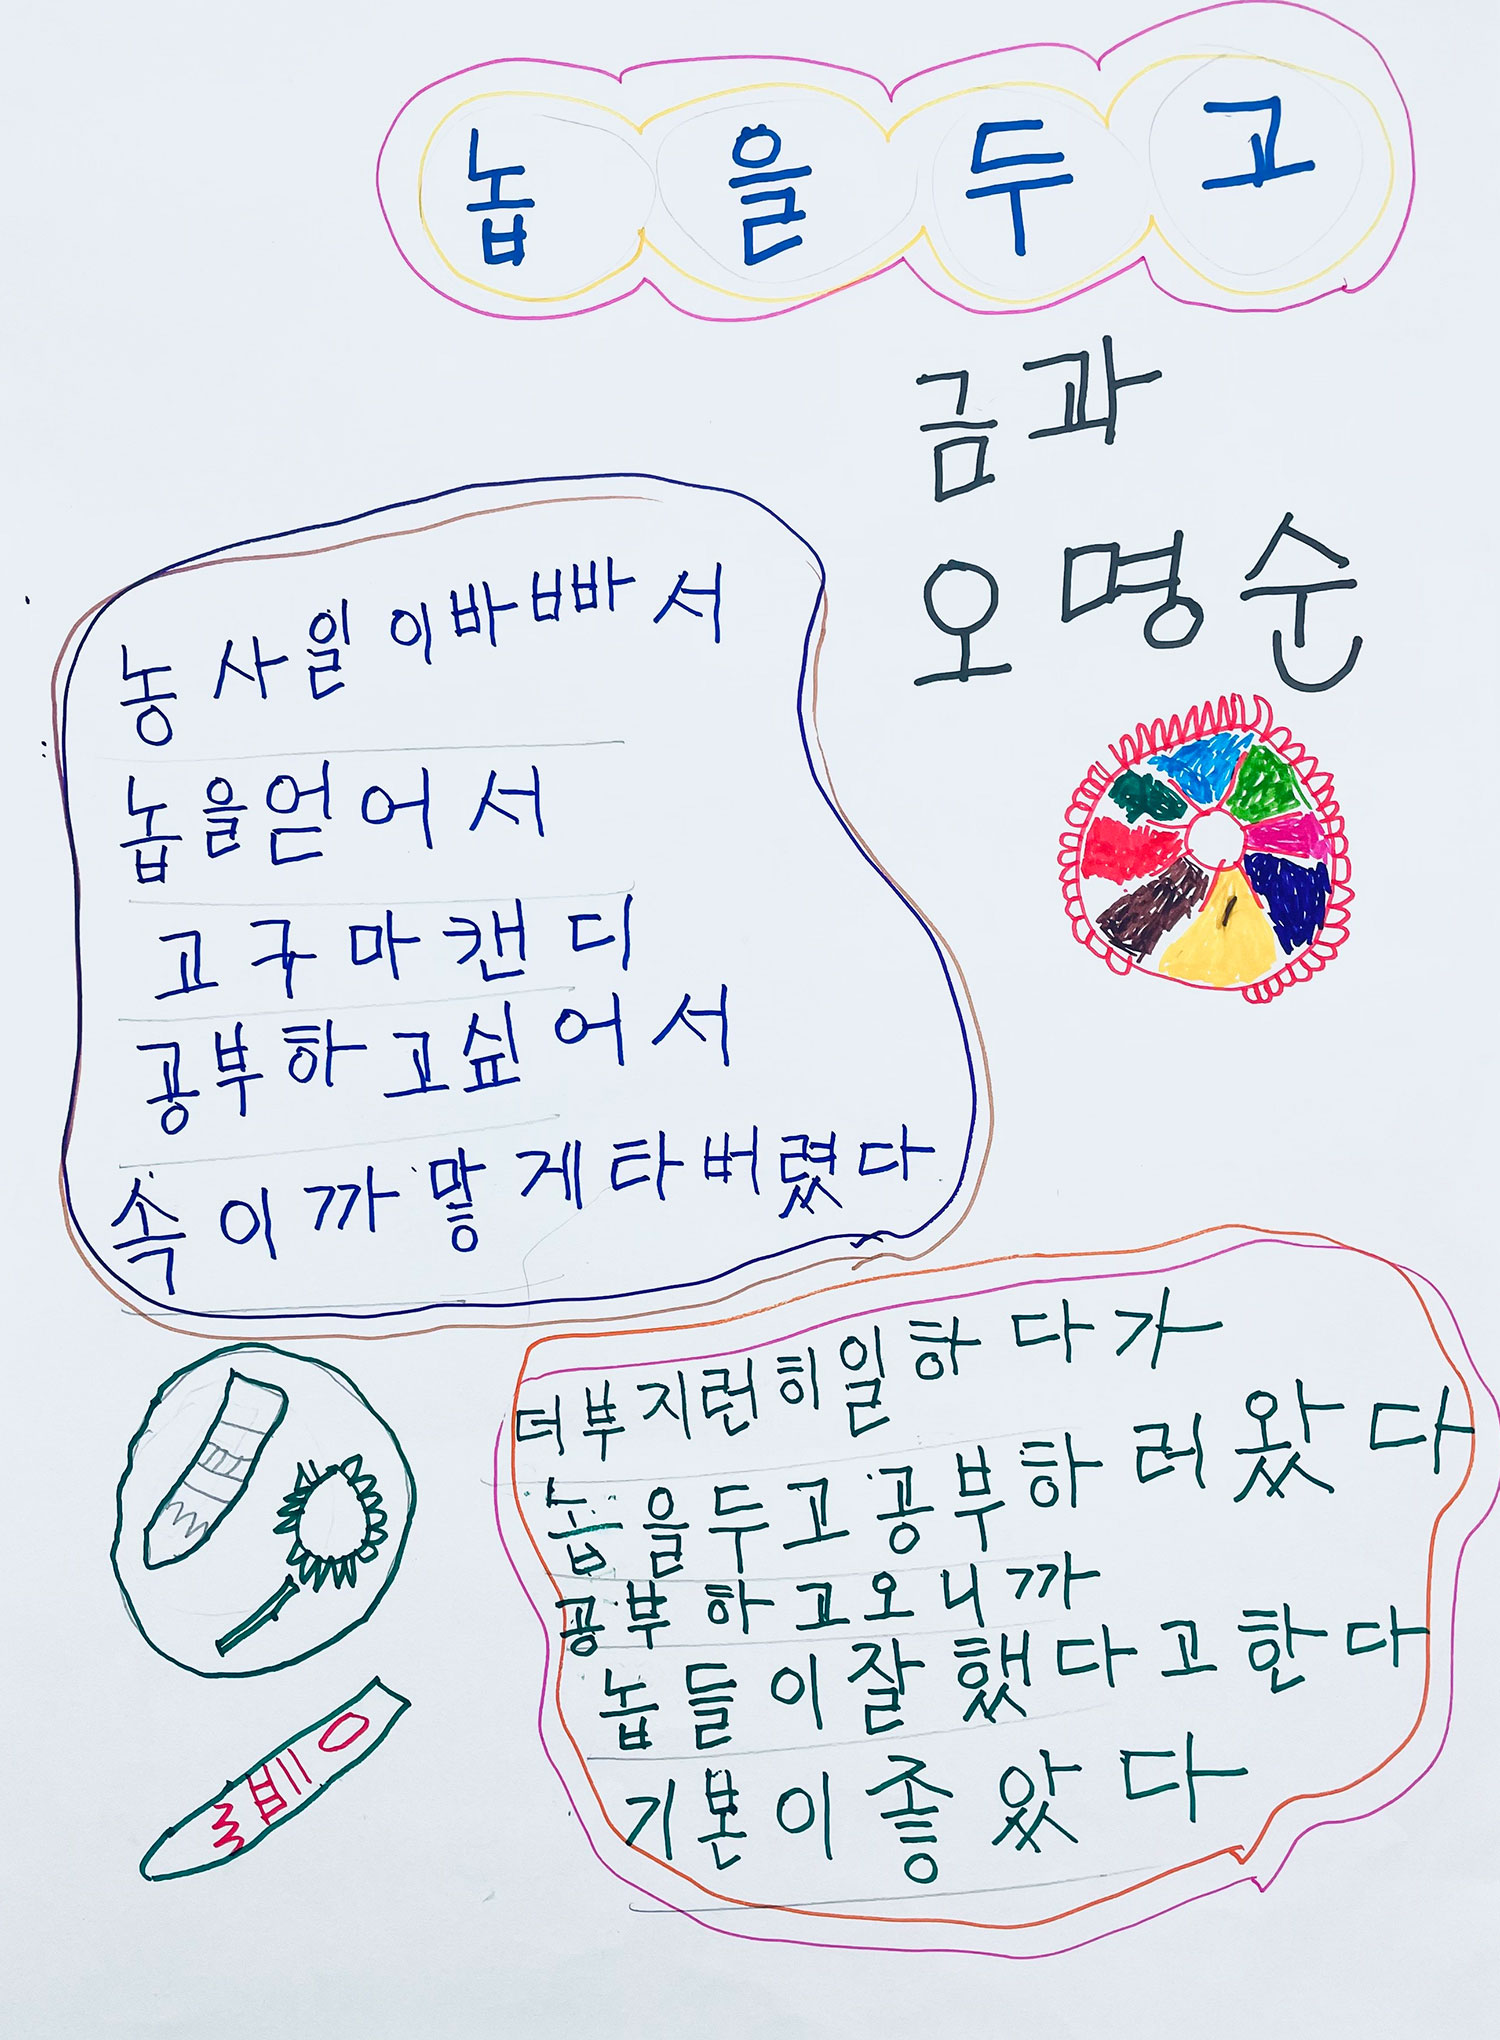 놉을두고
금과
오명순
농사일이바빠서
놉을얻어서
고구마캔디
공부하고싶어서
속이까맣게타버렸다
더부지런히일하다가
놉을두고공부하러왔다
공부하고오니까
놉들이잘했다고한다
기본이좋았다